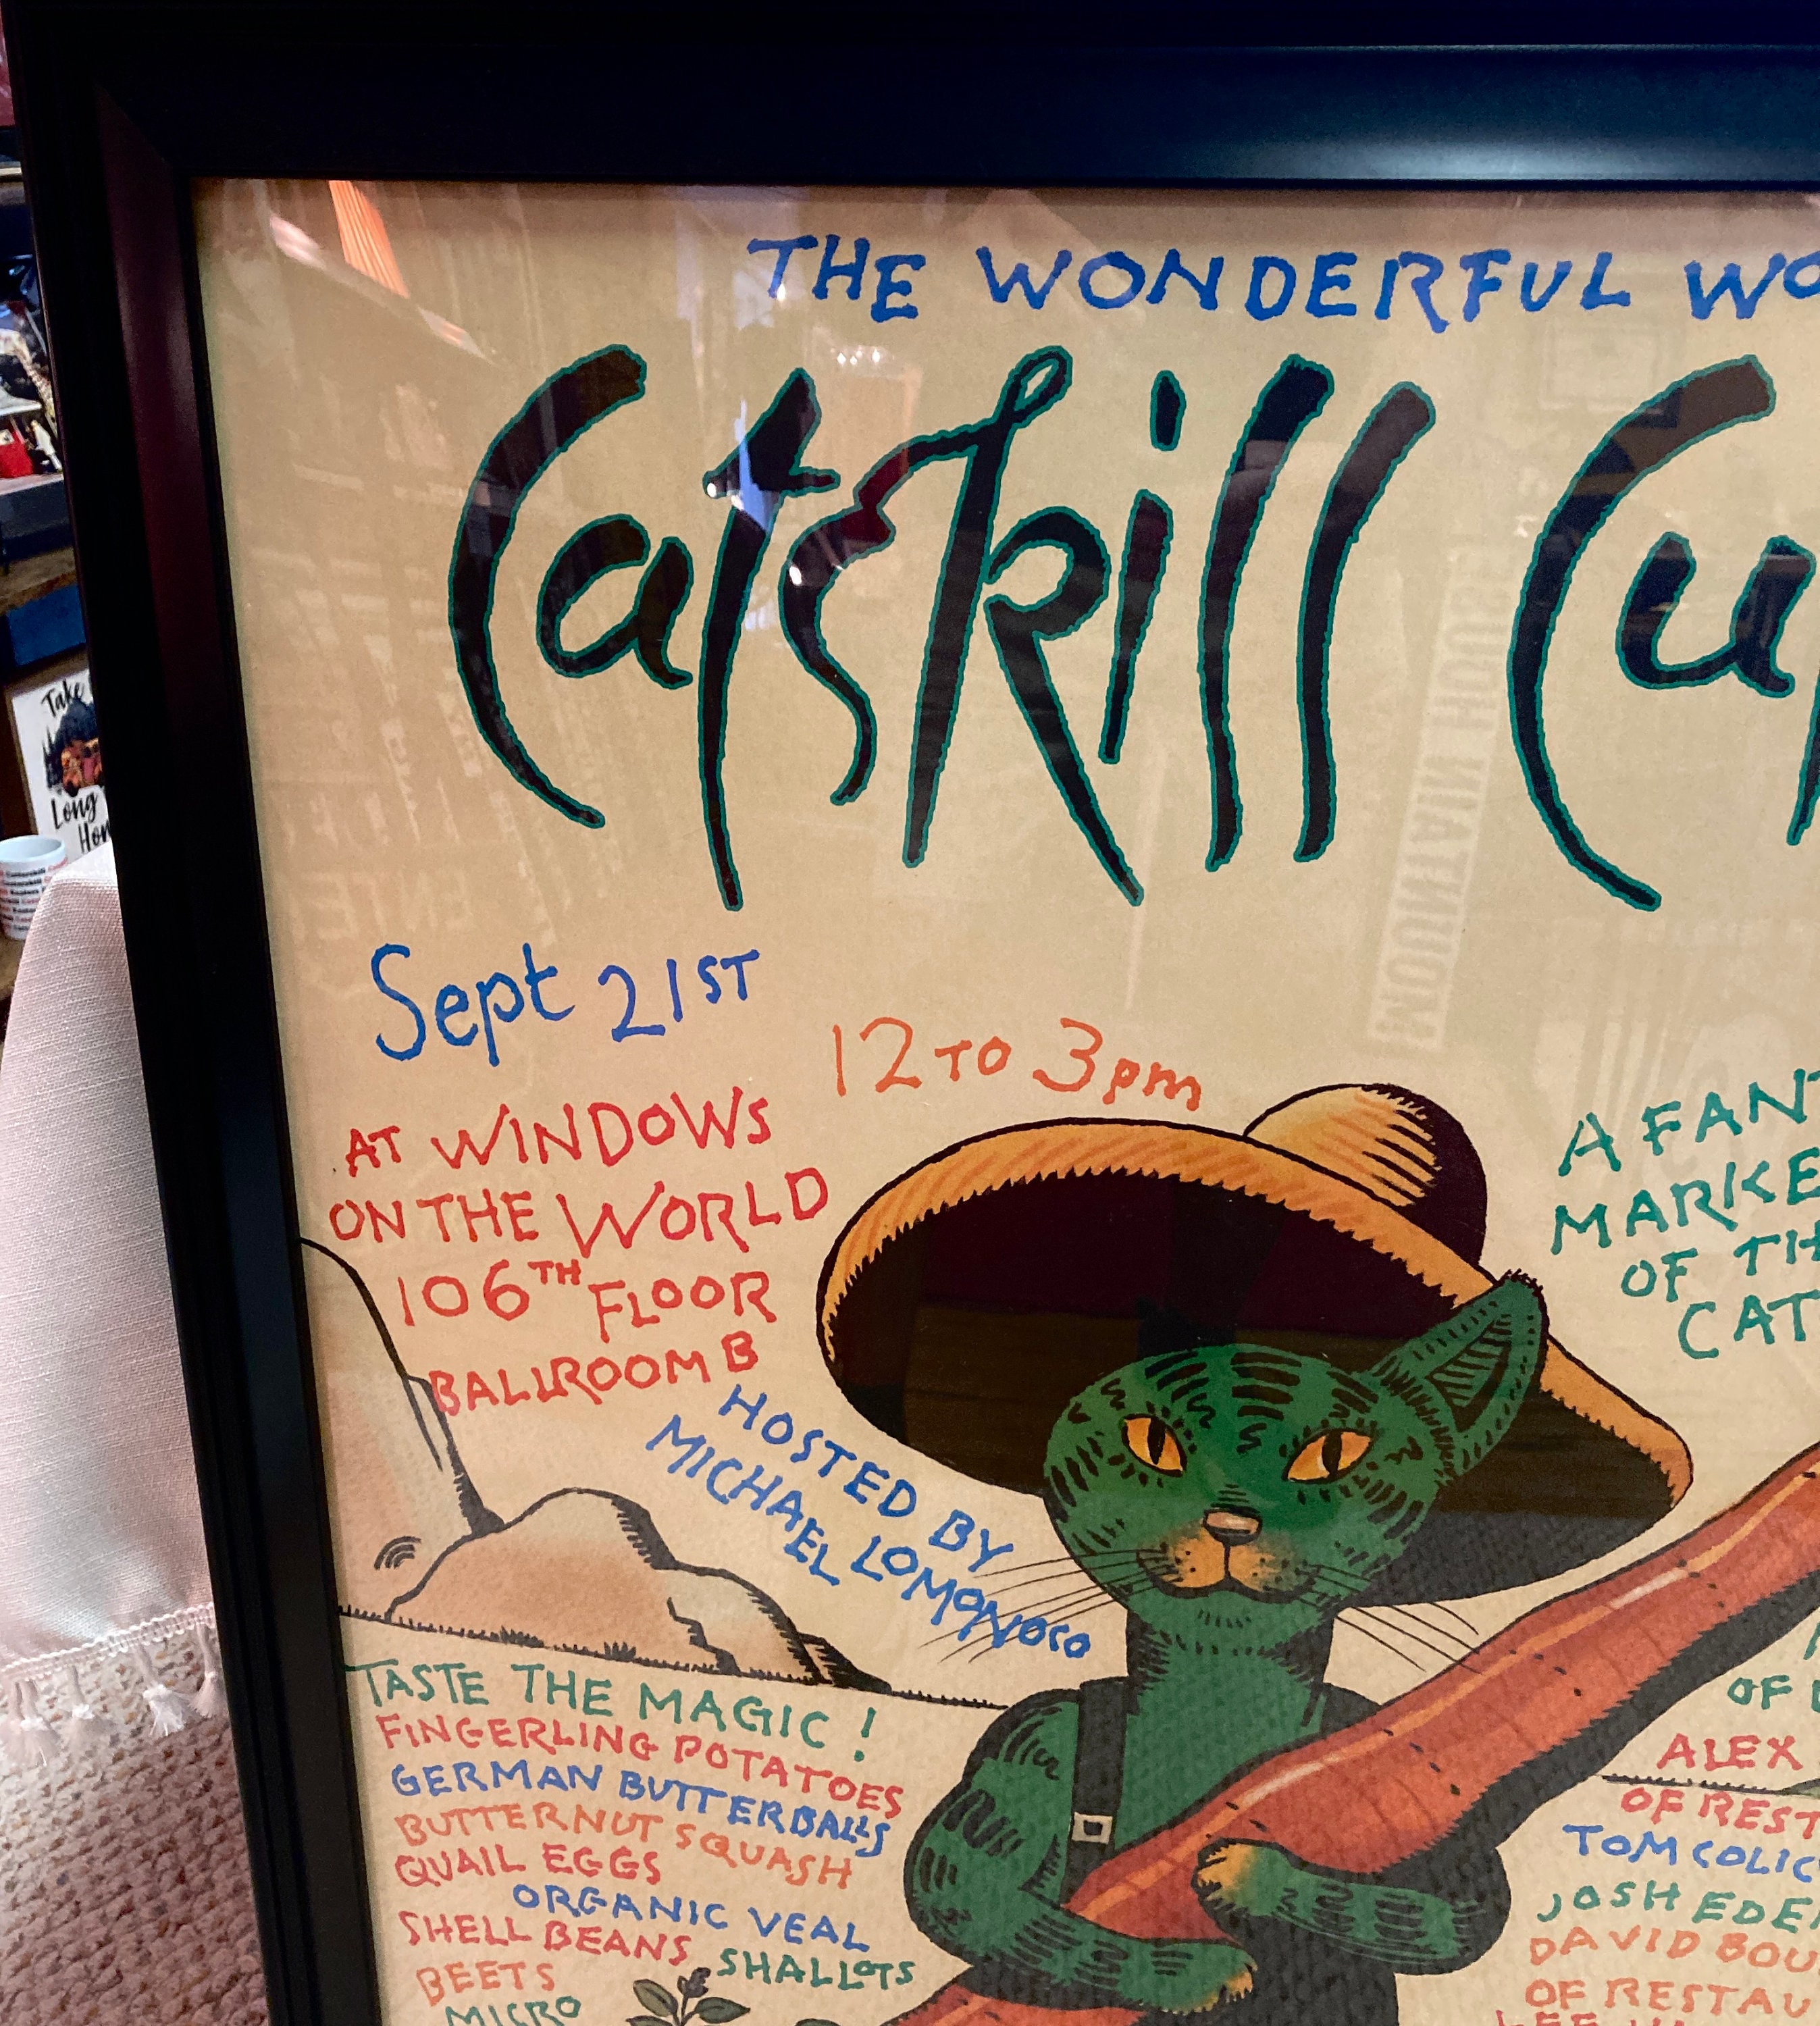 THE WONDERFUL WO
Catskill Cu
Sept 21ST
12 TO 3pm
AT WINDOWS
ON THE WORLD
106TH FLOOR
BALLROOM B
HOSTED BY
MICHAEL LOMONOCO
A FANT
MARKE
OF TH
CAT
TASTE THE MAGIC!
FINGERLING POTATOES
GERMAN BUTTERBALLS
BUTTERNUT SQUASH
QUAIL EGGS
ORGANIC VEAL
SHELL BEANS SHALLOTS
BEETS
MICRO
OF
ALEX
OF REST
TOM COLIC
JOSH EDE
DAVID BOU
OF RESTAU
Take
Long
Hom